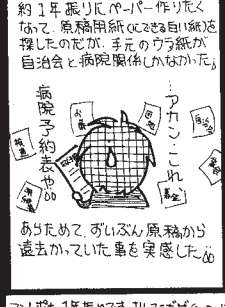 約1年振りにペーパー作りたく
なって、原稿用紙(にできる白い紙)を
探したのだが、手元のウラ紙が
自治会と病院関係しかなかった。
…アカン…これ
病院予約表や
あらためて、ずいぶん原稿から
遠去かっていた事を実感した